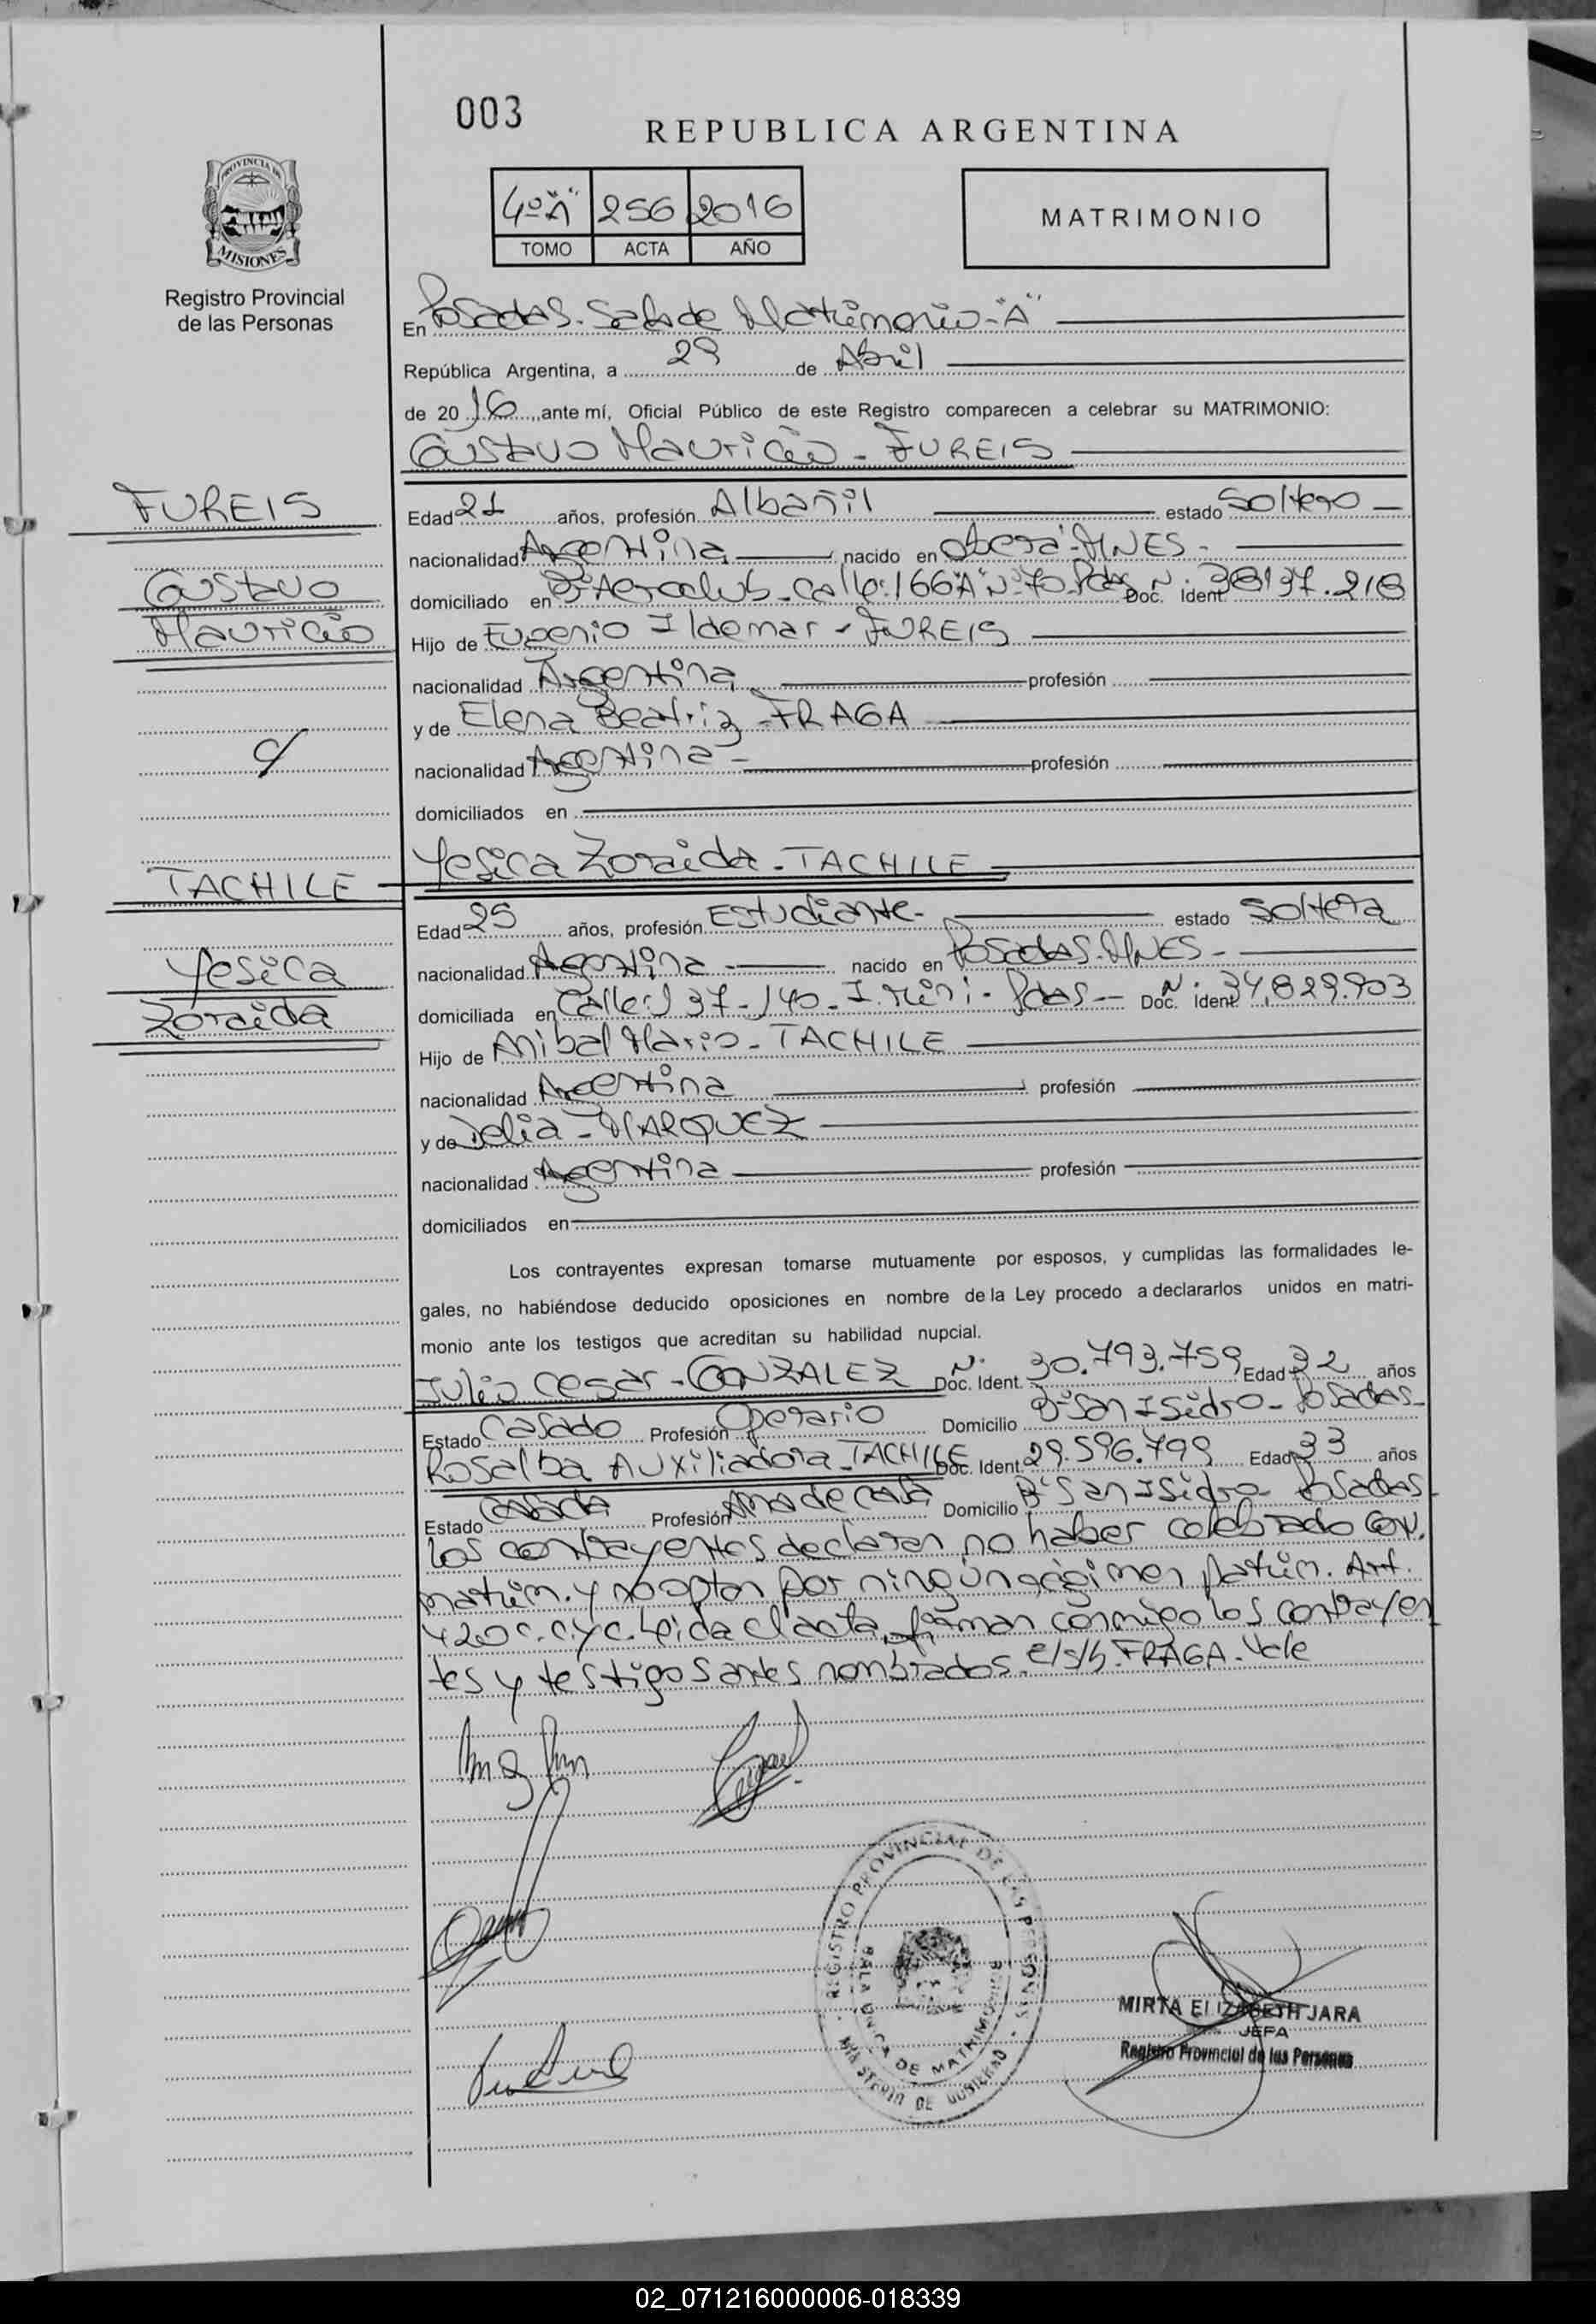 003
REPUBLICA ARGENTINA
4º "A" 256 2016
TOMO ACTA AÑO
MATRIMONIO
PROVINCIA DE
MISIONES
Registro Provincial
de las Personas
En Posadas. Sala de Matrimonio-"A"
República Argentina, a 29 de Abril
de 2016, ante mí, Oficial Público de este Registro comparecen a celebrar su MATRIMONIO:
Gustavo Mauricio - FUREIS
FUREIS
Gustavo
Mauricio
c/
TACHILE
Yesica
Zoraida
Edad 21 años, profesión Albañil estado Soltero
nacionalidad Argentina nacido en Oberá-MNES-
domiciliado en Bº Aeroclub-Calle:166"A"Nº70-Pdas Doc. Ident. Nº 38137.218
Hijo de Eugenio Ildemar - FUREIS
nacionalidad Argentina profesión
y de Elena Beatriz - FRAGA
nacionalidad Argentina - profesión
domiciliados en
Yesica Zoraida - TACHILE
Edad 25 años, profesión Estudiante- estado Soltera
nacionalidad Argentina - nacido en Posadas. MNES-
domiciliada en Calle:137-140-I.Miní-Pdas- Doc. Ident. Nº 34.829.903
Hijo de Anibal Mario - TACHILE
nacionalidad Argentina profesión
y de Delia - MARQUEZ
nacionalidad Argentina profesión
domiciliados en
Los contrayentes expresan tomarse mutuamente por esposos, y cumplidas las formalidades le-
gales, no habiéndose deducido oposiciones en nombre de la Ley procedo a declararlos unidos en matri-
monio ante los testigos que acreditan su habilidad nupcial.
Julio Cesar - GONZALEZ Doc. Ident. Nº 30.793.759 Edad 32 años
Estado Casado Profesión Operario Domicilio Bº San Isidro - Posadas-
Rosalba Auxiliadora - TACHILE Doc. Ident. 29.596.799 Edad 33 años
Estado Casada Profesión Ama de casa Domicilio Bº San Isidro Posadas-
Los contrayentes declaran no haber celebrado Conv.
matrim. y no optan por ningún régimen patrim. Art.
420 C.C.yC. Leida el acta, firman conmigo los contrayen
tes y testigos antes nombrados. e/s/b. FRAGA. Vale
REGISTRO PROVINCIAL DE LAS PERSONAS
SALA UNICA DE MATRIMONIOS
MINISTERIO DE GOBIERNO
MIRTA ELIZABETH JARA
JEFA
Registro Provincial de las Personas
02_071216000006-018339